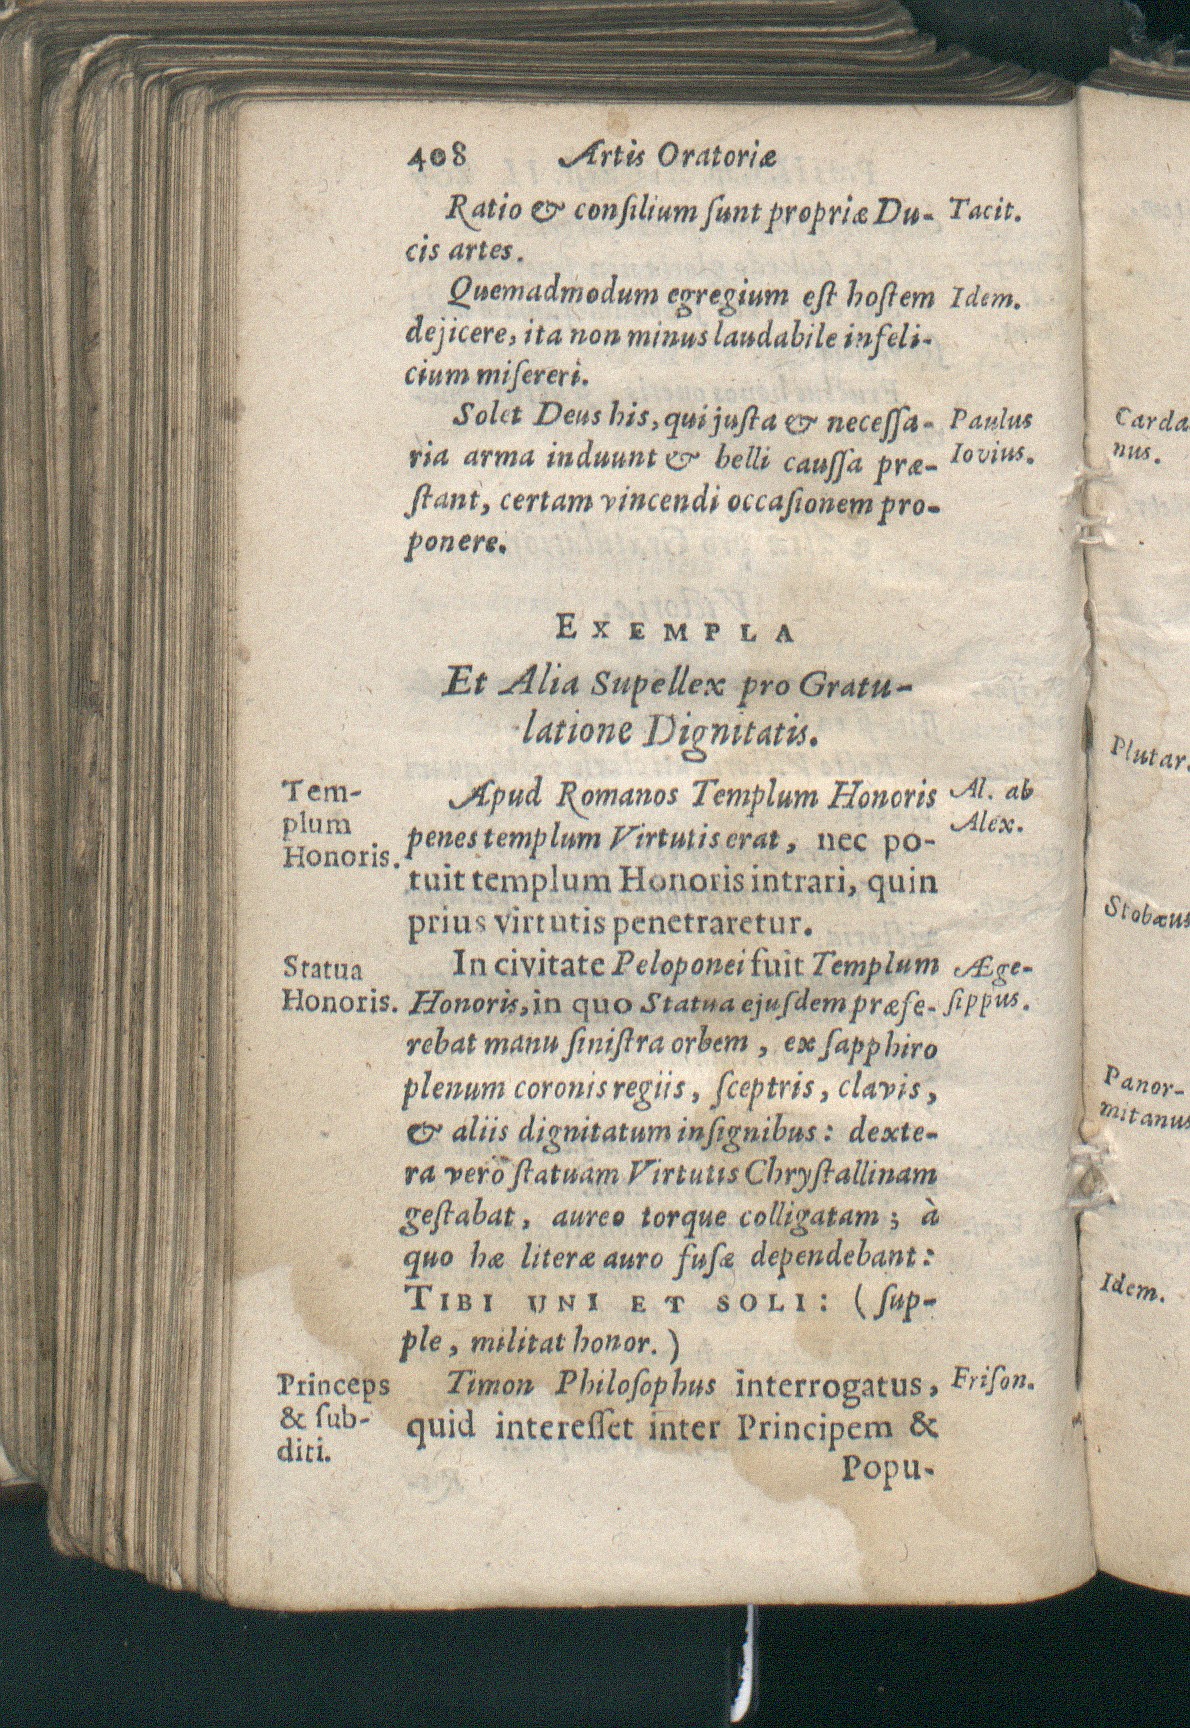 408 Artis Oratoriæ
Ratio & conſilium ſunt propriæ Du- Tacit.
cis artes.
Quemadmodum egregium eſt hoſtem Idem.
dejicere, ita non minus laudabile infeli-
cium miſereri.
Solet Deus his, qui juſta & neceſſa- Paulus
ria arma induunt & belli cauſſa præ- Iovius.
ſtant, certam vincendi occaſionem pro-
ponere.
EXEMPLA
Et Alia Supellex pro Gratu-
latione Dignitatis.
Tem-
plum
Honoris.
Apud Romanos Templum Honoris Al. ab
penes templum Virtutis erat, nec po- Alex.
tuit templum Honoris intrari, quin
prius virtutis penetraretur.
Statua
Honoris.
In civitate Peloponei fuit Templum Æge-
Honoris, in quo Statua ejuſdem præfe- ſippus.
rebat manu ſiniſtra orbem, ex ſapphiro
plenum coronis regiis, ſceptris, clavis,
& aliis dignitatum inſignibus: dexte-
ra verò ſtatuam Virtutis Chryſtallinam
geſtabat, aureo torque colligatam; à
quo hæ literæ auro fuſæ dependebant:
TIBI UNI ET SOLI: (ſup-
ple, militat honor.)
Princeps
& ſub-
diti.
Timon Philoſophus interrogatus, Friſon.
quid intereſſet inter Principem &
Popu-
Carda
nus.
Plutar.
Stobæus
Panor-
mitanus
Idem.